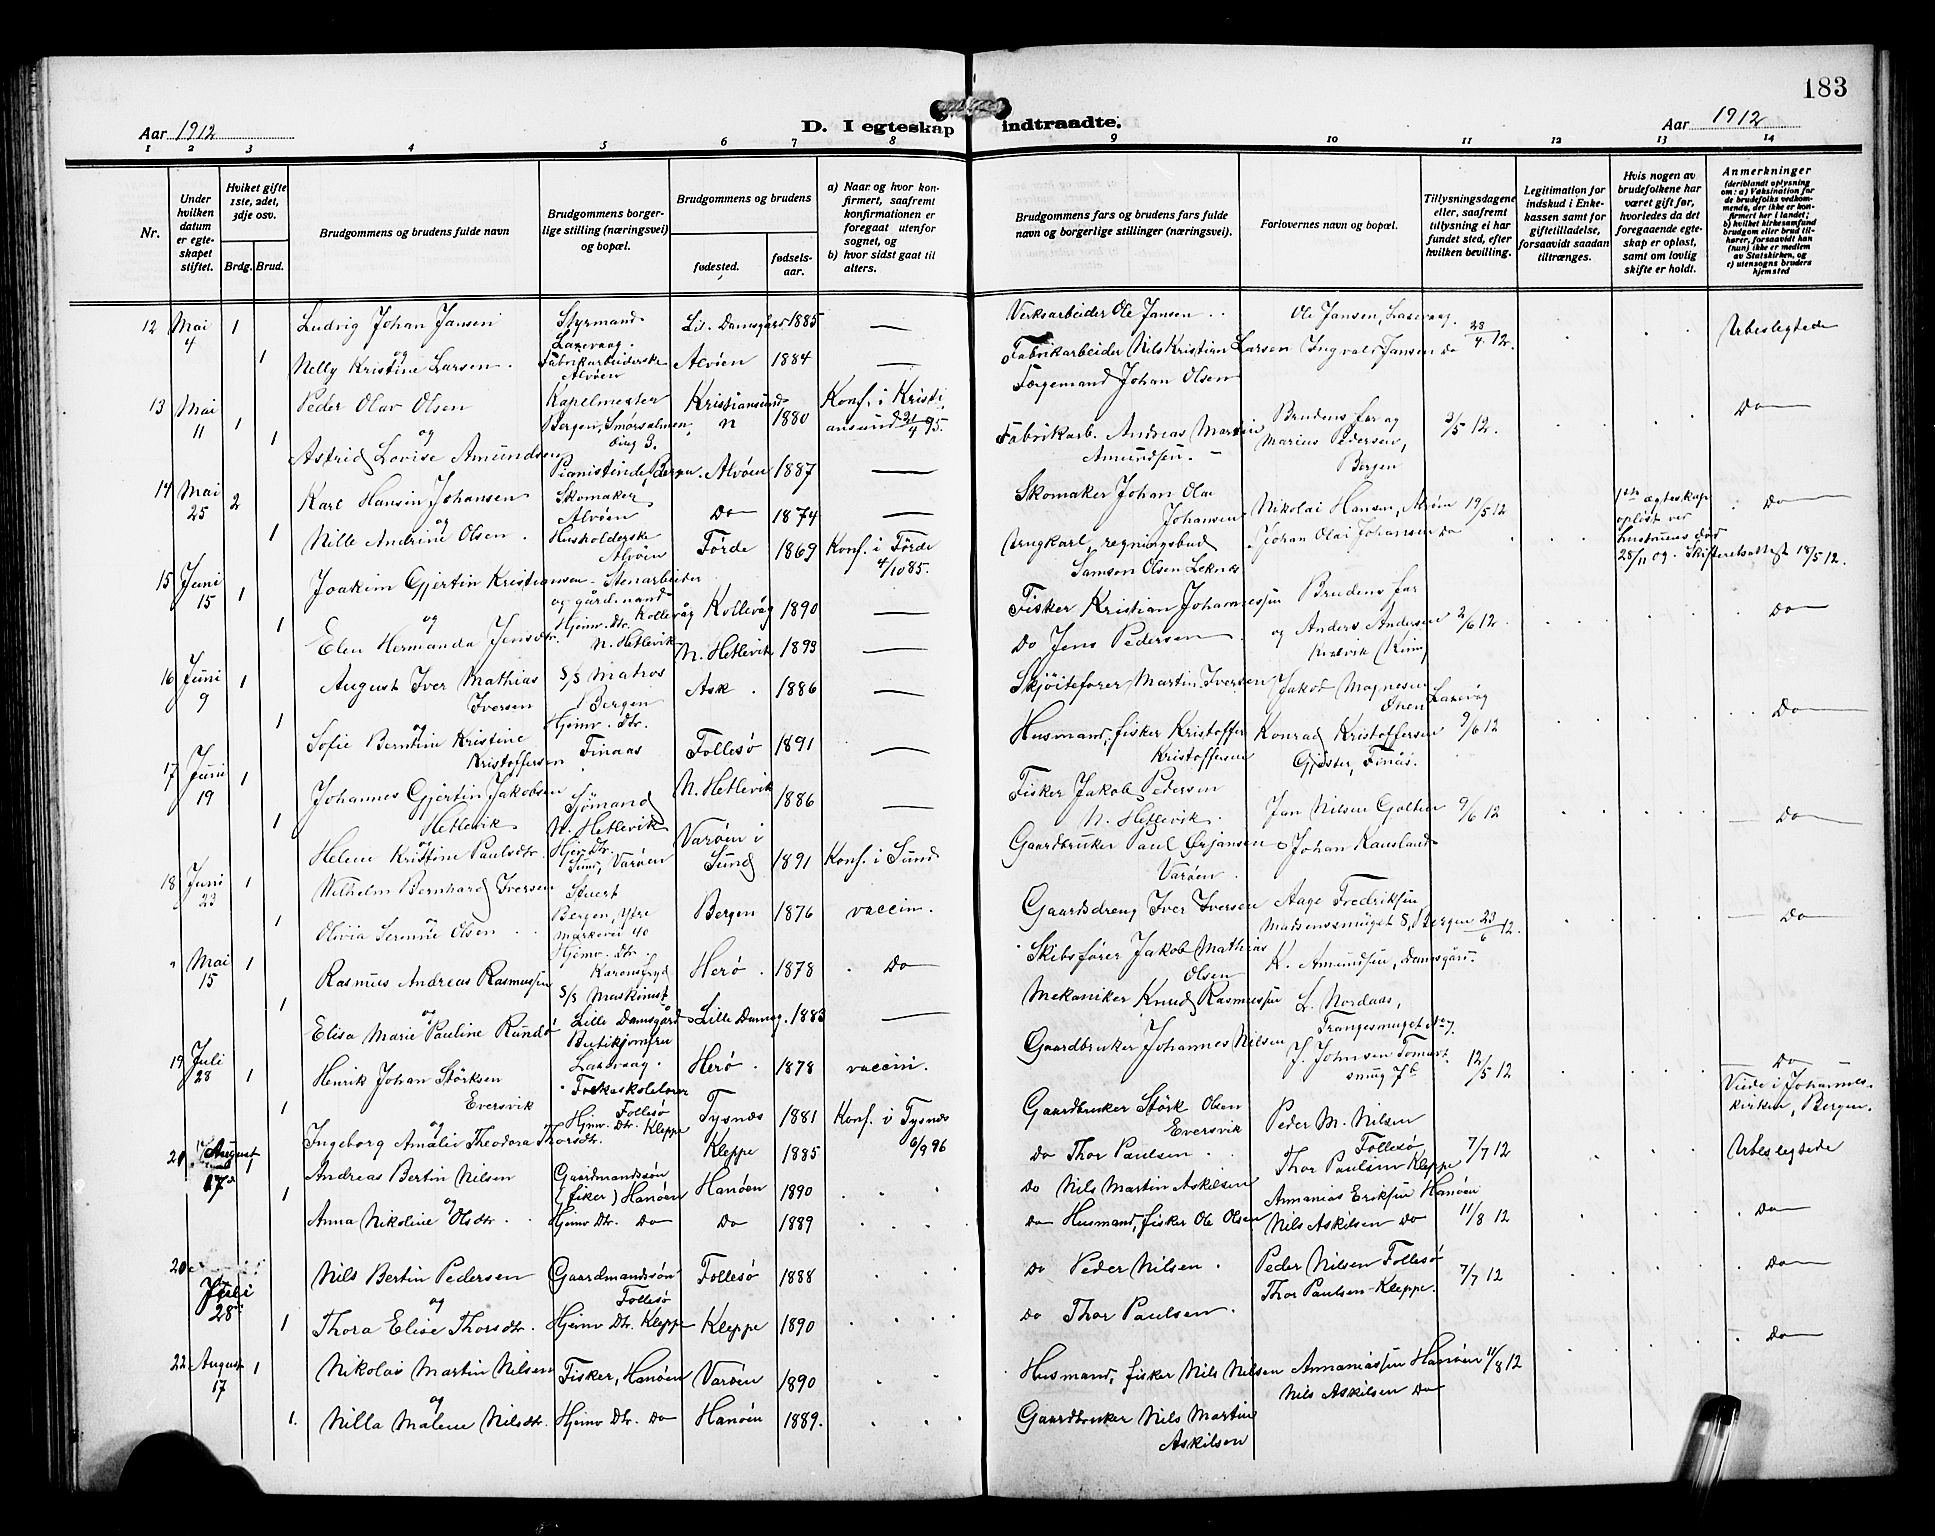 183
Aar 1912
D. I egteskap indtraadte.
Aar 1912
1 2 3 4 5 6 7 8 9 10 11 12 13 14
Nr.
Under hvilken datum er egteskapet stiftet.
Hviket gifte 1ste, 2det, 3dje osv.
Brdg. Brud.
Brudgommens og brudens fulde navn
Brudgommens borgerlige stilling (næringsvei) og bopæl.
Brudgommens og brudens
fødested.
fødselsaar.
a) Naar og hvor konfirmert, saafremt konfirmationen er foregaat utenfor sognet, og
b) hvor sidst gaat til alters.
Brudgommens fars og brudens fars fulde navn og borgerlige stillinger (næringsvei).
Forlovernes navn og bopæl.
Tillysningsdagene eller, saafremt tillysning ei har fundet sted, efter hvilken bevilling.
Legitimation for indskud i Enkekassen samt for giftetilladelse, forsaavidt saadan tiltrænges.
Hvis nogen av brudefolkene har været gift før, hvorledes da det foregaaende egteskap er opløst, samt om lovlig skifte er holdt.
Anmerkninger
(deriblandt oplysning om: a) Vaksination for de brudefolks vedkommende, der ikke er konfirmert her i landet; b) hvilket kirkesamfund brudgom eller brud tilhører, forsaavidt han (hun) ikke er medlem av Statskirken, og c) utensogns bruders hjemsted
12 Mai 4 1 Ludvig Johan Jansen Styrmand Laxevaag. Lil. Damsgård 1885 — Verksarbeider Ole Jansen Ole Jansen, Laxevaag. 28/4 12. Ubeslegtede
og
1 Nelly Kristine Larsen. Fabrikarbeiderske Alvöen Alvöen 1884 — Fabrikarbeider Nils Kristian Larsen Ingvald Jansen do
13 Mai 11 1 Peder Olav Olsen Kapelmester Bergen, Smörsalmen, 3. Kristiansund n 1880 Konf. i Kristiansund 21/4 95. Færgemand Johan Olsen Brudens far og Marius Pedersen, Bergen 2/5 12. Do
og
1 Astrid Lovise Amundsen Pianistinde, Bergen. Alvöen 1887 — Fabrikarb. Andreas Martin Amundsen.
14 Mai 25 2 Karl Hansin Johansen Skomaker Alvöen Do 1874 — Skomaker Johan Olai Johansen Nikolai Hansen, Alvöen 19/5 12 1ste egteskap opløst ved hustruens død 28/11 09. Skifteretsattest 18/5 12. Do
og
1 Nille Andrine Olsen. Husholderske Alvöen Förde 1869 Konf. i Förde 4/10 85. regningsbud Samson Olsen Leknes Johan Olai Johansen do
15 Juni 15 1 Joakim Gjertin Kristiansen Stenarbeider og gårdmand Kollevåg Kollevåg 1890 — Fisker Kristian Johannessen Brudens far og Anders Andersen 2/6 12. Do
og
1 Elen Hermanda Jensdtr. Hjemv. dtr. N. Hetlevik N. Hetlevik 1893 — Do Jens Pedersen.
16 Juni 9 1 August Iver Mathias Iversen S/S Matros Bergen Ask. 1886 — Skjöitefører Martin Iversen Jakob Magnesen Laxevåg 9/6 12 Do
og
1 Sofie Berntine Kristine Kristoffersen Hjemv. dtr. Finaas Follesö 1891 — Husmand, fisker Kristoffer Kristoffersen Konrad Kristoffersen Gjöster, Finås.
17 Juni 19 1 Johannes Gjertin Jakobsen Hetlevik Sjömand N. Hetlevik N. Hetlevik 1886 — Fisker Jakob Pedersen N. Hetlevik. Jan Nilsen Golten 9/6 12 Do
og
1 Helene Kristine Paulsdtr. Hjemv. dtr. Sund, Varöen Varöen i Sund 1891 Konf. i Sund Gaardbruker Paul Ørjansen Varöen. Johan Kausland
18 Juni 23 1 Wilhelm Bernhard Iversen Stuert Bergen, Ytre Markevei 40 Bergen 1876 vaccin. Gaardsdreng Iver Iversen Aage Fredriksen Madsensmuget 8, Bergen 23/6 12. Do
og
1 Olivia Serenne Olsen Hjemv. dtr. Skibsfører Jakob Mathias Olsen K. Amundsen, Damsgård.
" Mai 15 1 Rasmus Andreas Rasmussen S/S Maskinist Lille Damsgård Herö. 1878 Do Mekaniker Knud Rasmussen L. Nordaas, Trangesmuget No 7.
og
1 Elisa Marie Pauline Rundö Butikjomfru Laxevaag. Lille Damsg. 1883 — Gaardbruker Johannes Nilsen J. Johnsen smug 7b 12/5 12 Do Viede i Johanneskirken, Bergen.
19 Juli 28 1 Henrik Johan Störksen Eversvik Folkeskolelærer Follesö Herö. 1878 vaccin. Gaardbruker Störk Olsen Eversvik Peder M. Nilsen Follesö 7/7 12 Ubeslegtede
og
1 Ingeborg Amalie Theodora Thorsdtr. Hjemv. Dtr. Kleppe Tysnæs 1881 Konf. i Tysnæs 6/9 96 Do Thor Paulsen. Thor Paulsen Kleppe
Kleppe 1885
20 August 17de 1 Andreas Bertin Nilsen Gaardmandssön (fisker) Hanöen Hanöen 1890 Do Nils Martin Askilsen Annanias Eriksen Hanöen 11/8 12 Do
og
1 Anna Nikoline Olsdtr. Hjemv Dtr. Do Do 1889 Do Husmand, fisker Ole Olsen Nils Askilsen Do
20 Juli 28 Nils Bertin Pedersen Gaardmandssön Follesö Follesö 1888 Do Peder Nilsen. Peder Nilsen Follesö 7/7 12 Do
og
1 Thora Elise Thorsdtr. Hjemv Dtr. Kleppe Kleppe 1890 Do Thor Paulsen. Thor Paulsen Kleppe.
22 August 17 1 Nikolai Martin Nilsen Fisker, Hanöen Varöen 1890 Husmand, fisker Nils Nilsen Annaniassen Hanöen 11/8 12 Do
og
1. Nilla Malene Nilsdtr. Hjemv Dtr. Do Hanöen 1889. Gaardbruker Nils Martin Askilsen Nils Askilsen Do